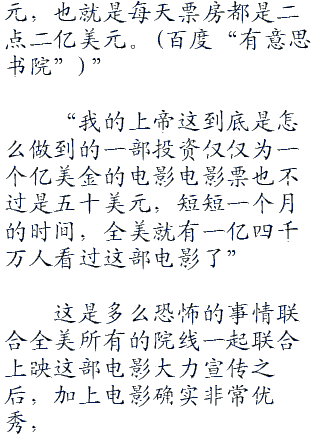 元，也就是每天票房都是二
点二亿美元。(百度“有意思
书院”)”
“我的上帝这到底是怎
么做到的一部投资仅仅为一
个亿美金的电影电影票也不
过是五十美元，短短一个月
的时间，全美就有一亿四千
万人看过这部电影了”
这是多么恐怖的事情联
合全美所有的院线一起联合
上映这部电影大力宣传之
后，加上电影确实非常优
秀，